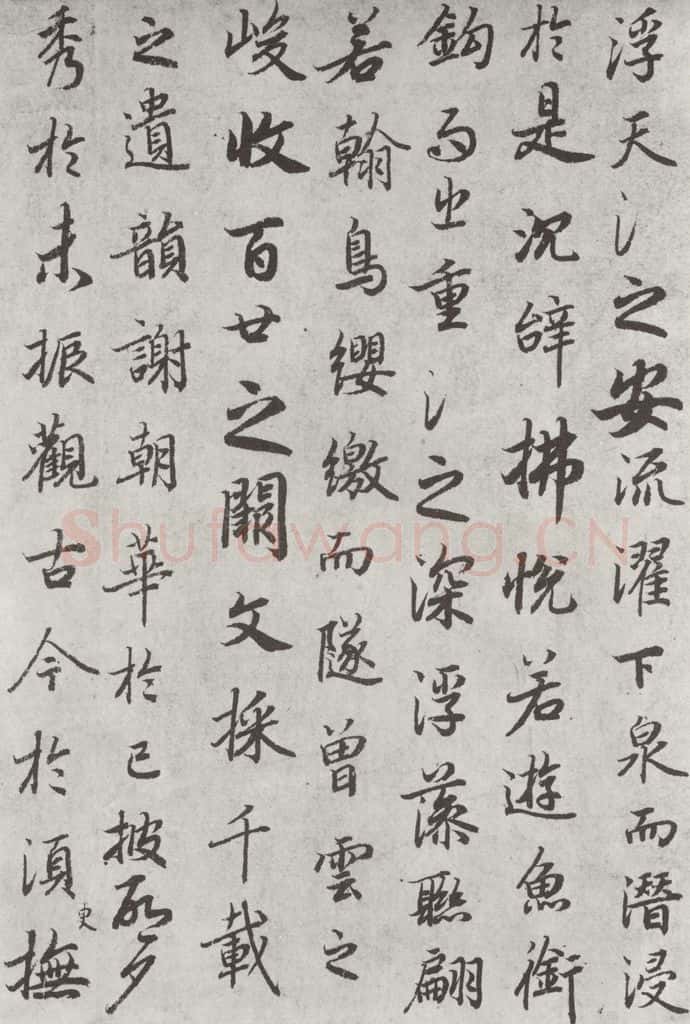 浮天氵之安流濯下泉而潛浸
於是沉辝拂悅若遊魚銜
鈎而出重氵之深浮藻聯翩
若翰鳥纓繳而隧曾雲之
峻收百廿之闕文採千載
之遺韻謝朝華於已披啓夕
秀於未振觀古今於湏臾撫
Shufawang.CN